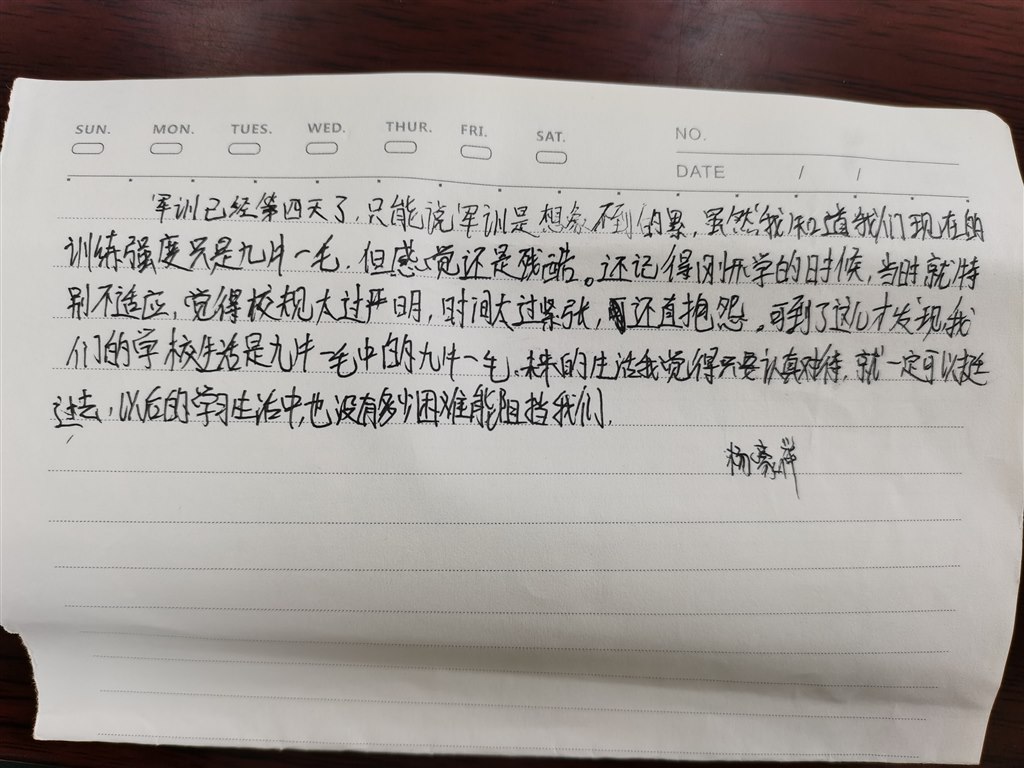 SUN. MON. TUES. WED. THUR. FRI. SAT.
NO.
DATE / /
军训已经第四天了,只能说军训是想象不到的累,虽然我知道我们现在的
训练强度只是九牛一毛,但感觉还是残酷。还记得刚开学的时候,当时就特
别不适应,觉得校规太过严明,时间太过紧张,还直抱怨。可到了这儿才发现我
们的学校生活是九牛一毛中的九牛一毛。未来的生活我觉得只要认真对待,就一定可以挺
过去,以后的学习生活中,也没有多少困难能阻挡我们。
杨豪祥